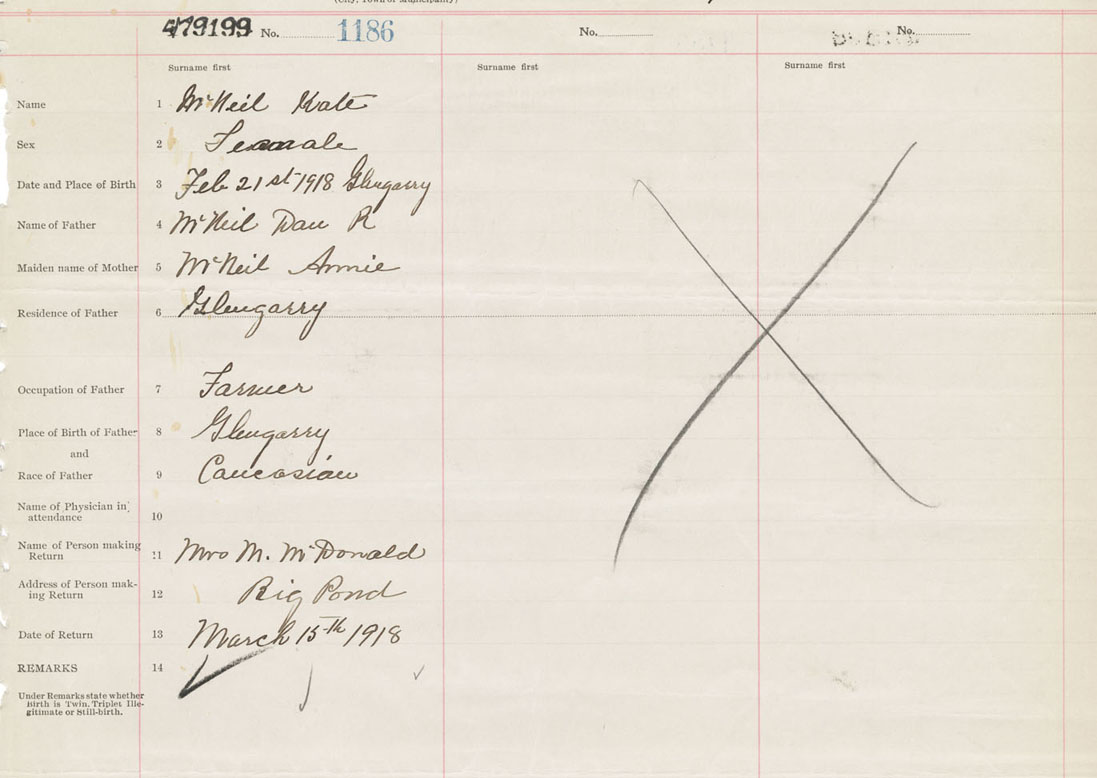 (City, Town or Municipality)
479199 No. 1186 No. No.
Surname first Surname first Surname first
Name 1 McNeil Kate
Sex 2 Female
Date and Place of Birth 3 Feb 21st 1918 Glengarry
Name of Father 4 McNeil Dan R
Maiden name of Mother 5 McNeil Annie
Residence of Father 6 Glengarry
Occupation of Father 7 Farmer
Place of Birth of Father 8 Glengarry
and
Race of Father 9 Caucasian
Name of Physician in
attendance 10
Name of Person making
Return 11 Mrs M. McDonald
Address of Person mak-
ing Return 12 Big Pond
Date of Return 13 March 15th 1918
REMARKS 14
Under Remarks state whether
Birth is Twin, Triplet Ille-
gitimate or Still-birth.